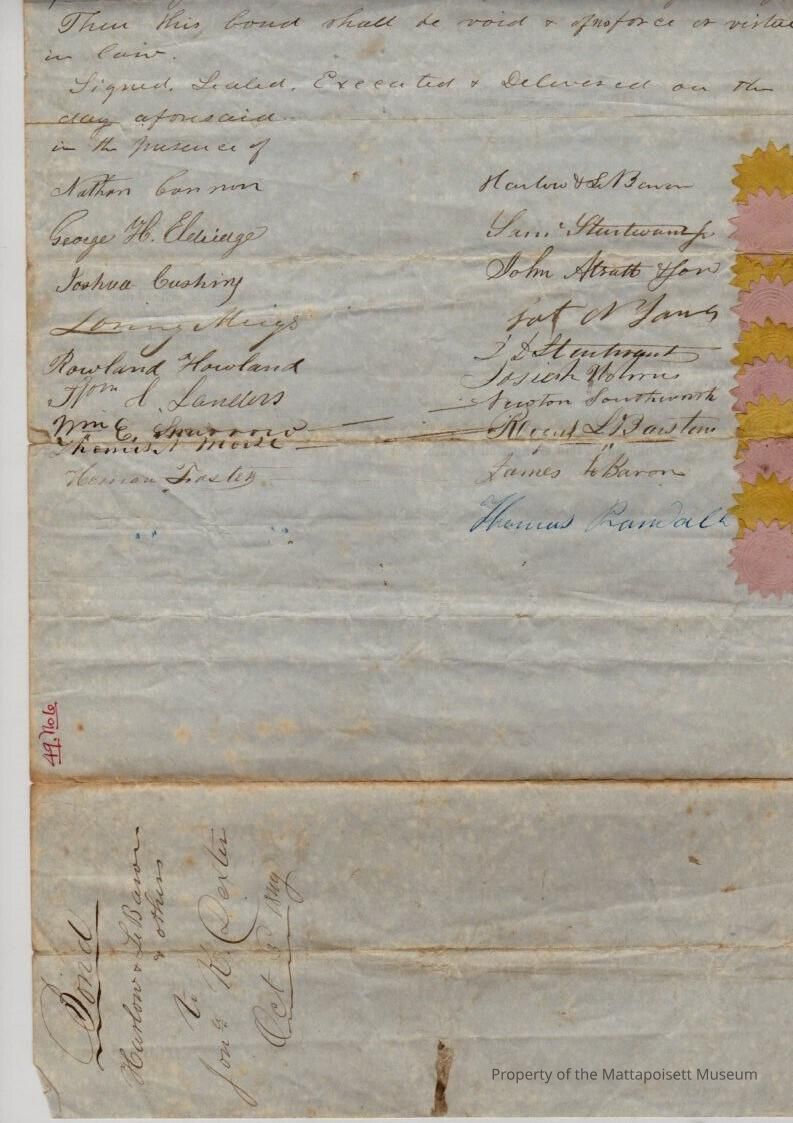 Then this bond shall be void & of no force or virtue
in law.
Signed, Sealed, Executed & Delivered on the
day aforesaid
in the presence of
Nathan Cannon
George H. Eldridge
Joshua Cushing
Loring Meigs
Rowland Howland
Wm E. Sparrow
Thomas N Morse
Heman
Landers
Harlow & LeBaron
Saml Sturtevant Jr
John Atsatt & Son
J D Sturtevant
Josiah Holmes
Newton Southworth
L Barstow
James LeBaron
Thomas Randall
49.1106
Bond
Harlow & LeBaron
& others
to
Jona H. Dexter
Oct 3 1849
Property of the Mattapoisett Museum